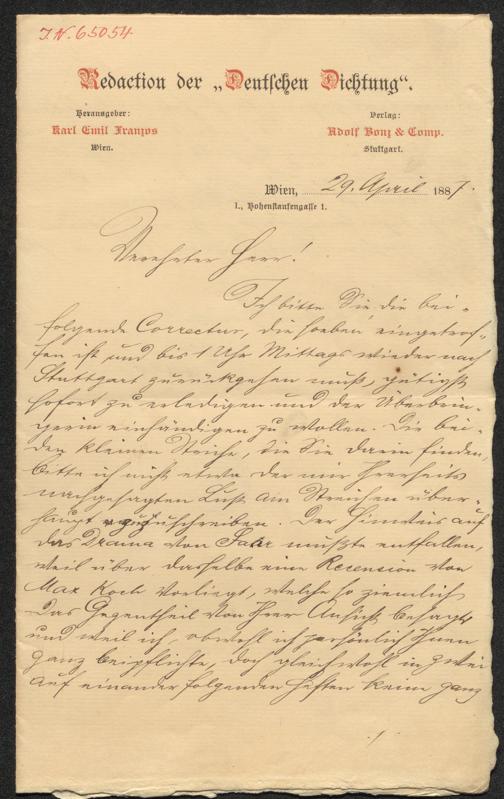 I.N. 65054
Redaction der „Deutschen Dichtung“.
Herausgeber:
Karl Emil Franzos
Wien.
Verlag:
Adolf Bonz & Comp.
Stuttgart.
Wien, 29. April 1887.
I., Hohenstaufengasse 1.
Verehrter Herr!
Ich bitte Sie die bei-
folgende Correctur, die soeben eingetrof-
fen ist und bis 1 Uhr Mittags wieder nach
Stuttgart zurückgehen muß, gütigst
sofort zu erledigen und der Überbrin-
gerin einhändigen zu wollen. Die bei-
den kleinen Striche, die Sie darin finden,
bitte ich nicht etwa der mir Ihrerseits
nachgesagten Lust am Streichen über-
haupt zuzuschreiben. Der Hinweis auf
das Drama von Saar mußte entfallen,
weil über dasselbe eine Recension von
Max Koch vorliegt, welche so ziemlich
das Gegentheil von Ihrer Ansicht besagt
und weil ich, obwohl ich persönlich Ihnen
ganz beipflichte, doch gleichwohl in zwei
auf einander folgenden Heften keine ganz
./.